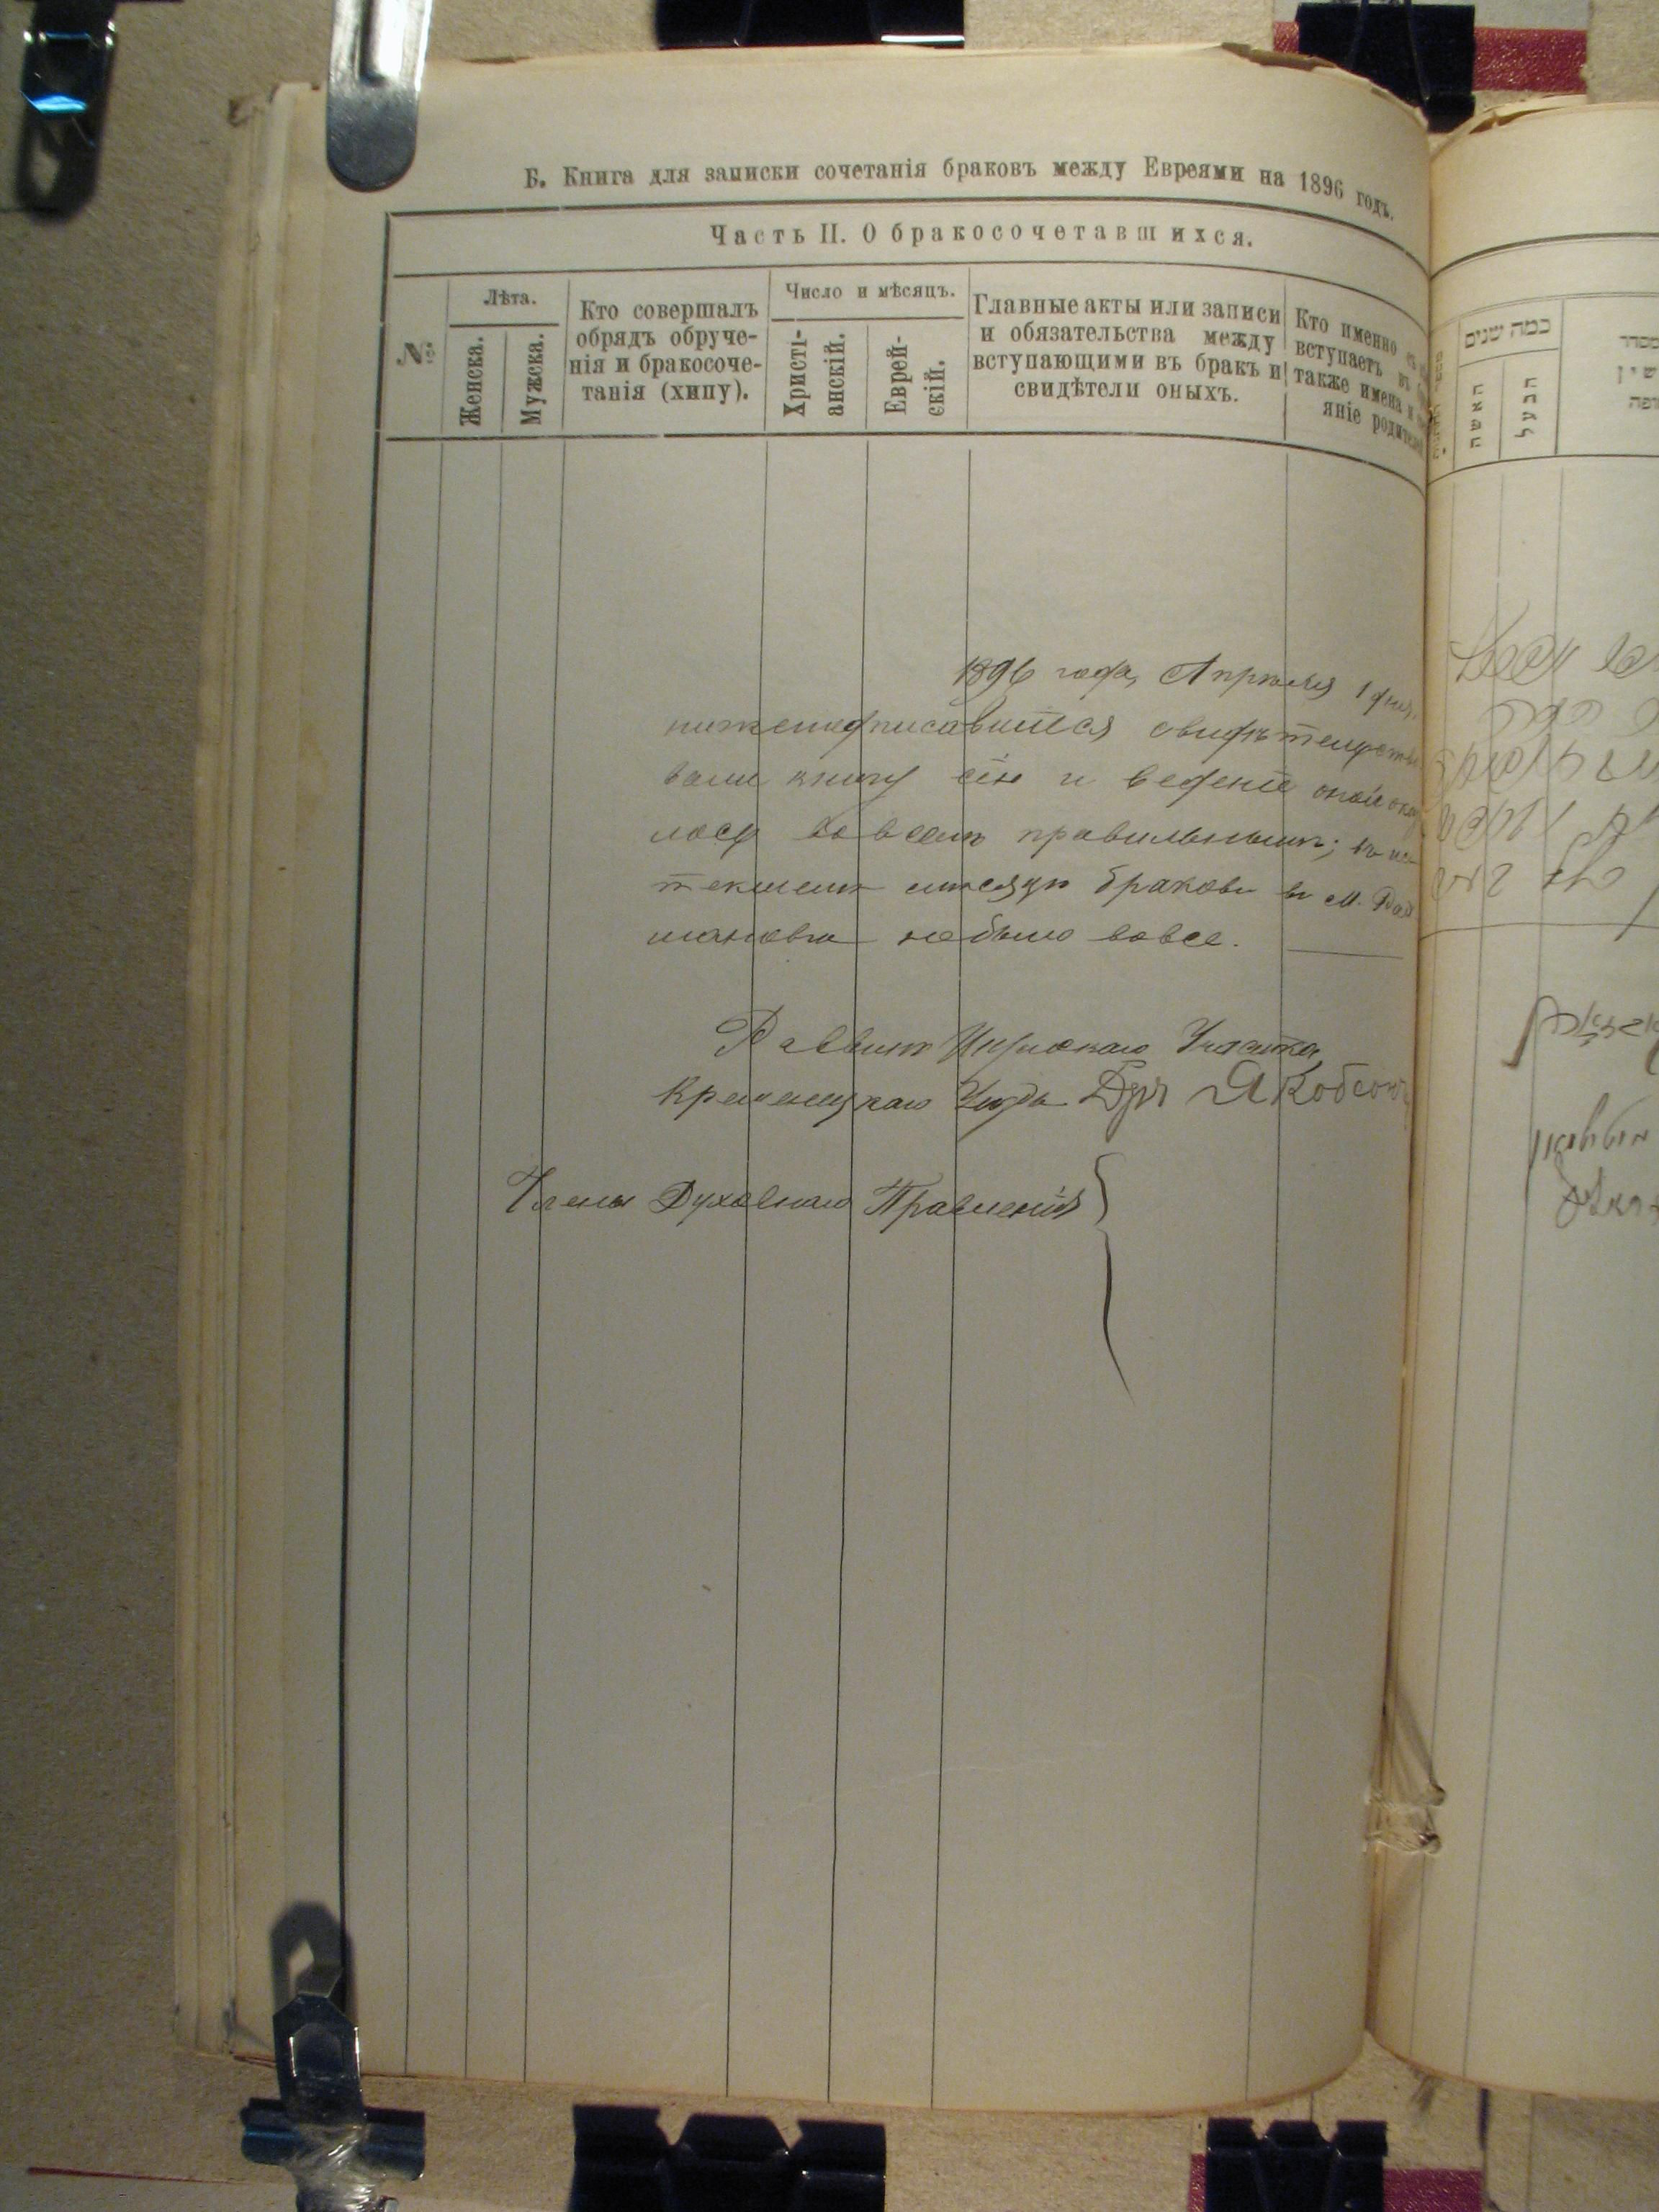 Б. Книга для записки сочетанія браковъ между Евреями на 1896 годъ.
Часть II. О бракосочетавшихся.
№
Лѣта.
Женска.
Мужска.
Кто совершалъ
обрядъ обруче-
нія и бракосоче-
танія (хипу).
Число и мѣсяцъ.
Христі-
анскій.
Еврей-
скій.
Главные акты или записи
и обязательства между
вступающими въ бракъ и
свидѣтели оныхъ.
Кто именно съ
вступаетъ въ
также имена и
яніе родителей
1896 года, Апрѣля 1 дня,
нижеподписавшіеся свидѣтельство
вали книгу сію и веденіе оной ока
лось во всемъ правильнымъ; въ ис
текшемъ мѣсяцѣ браковъ въ м.
не было вовсе.
Раввинъ Участка
Кременецкаго Уѣзда Дръ Якобсонъ
Члены Духовнаго Правленія
כמה שנים
האשה
הבעל